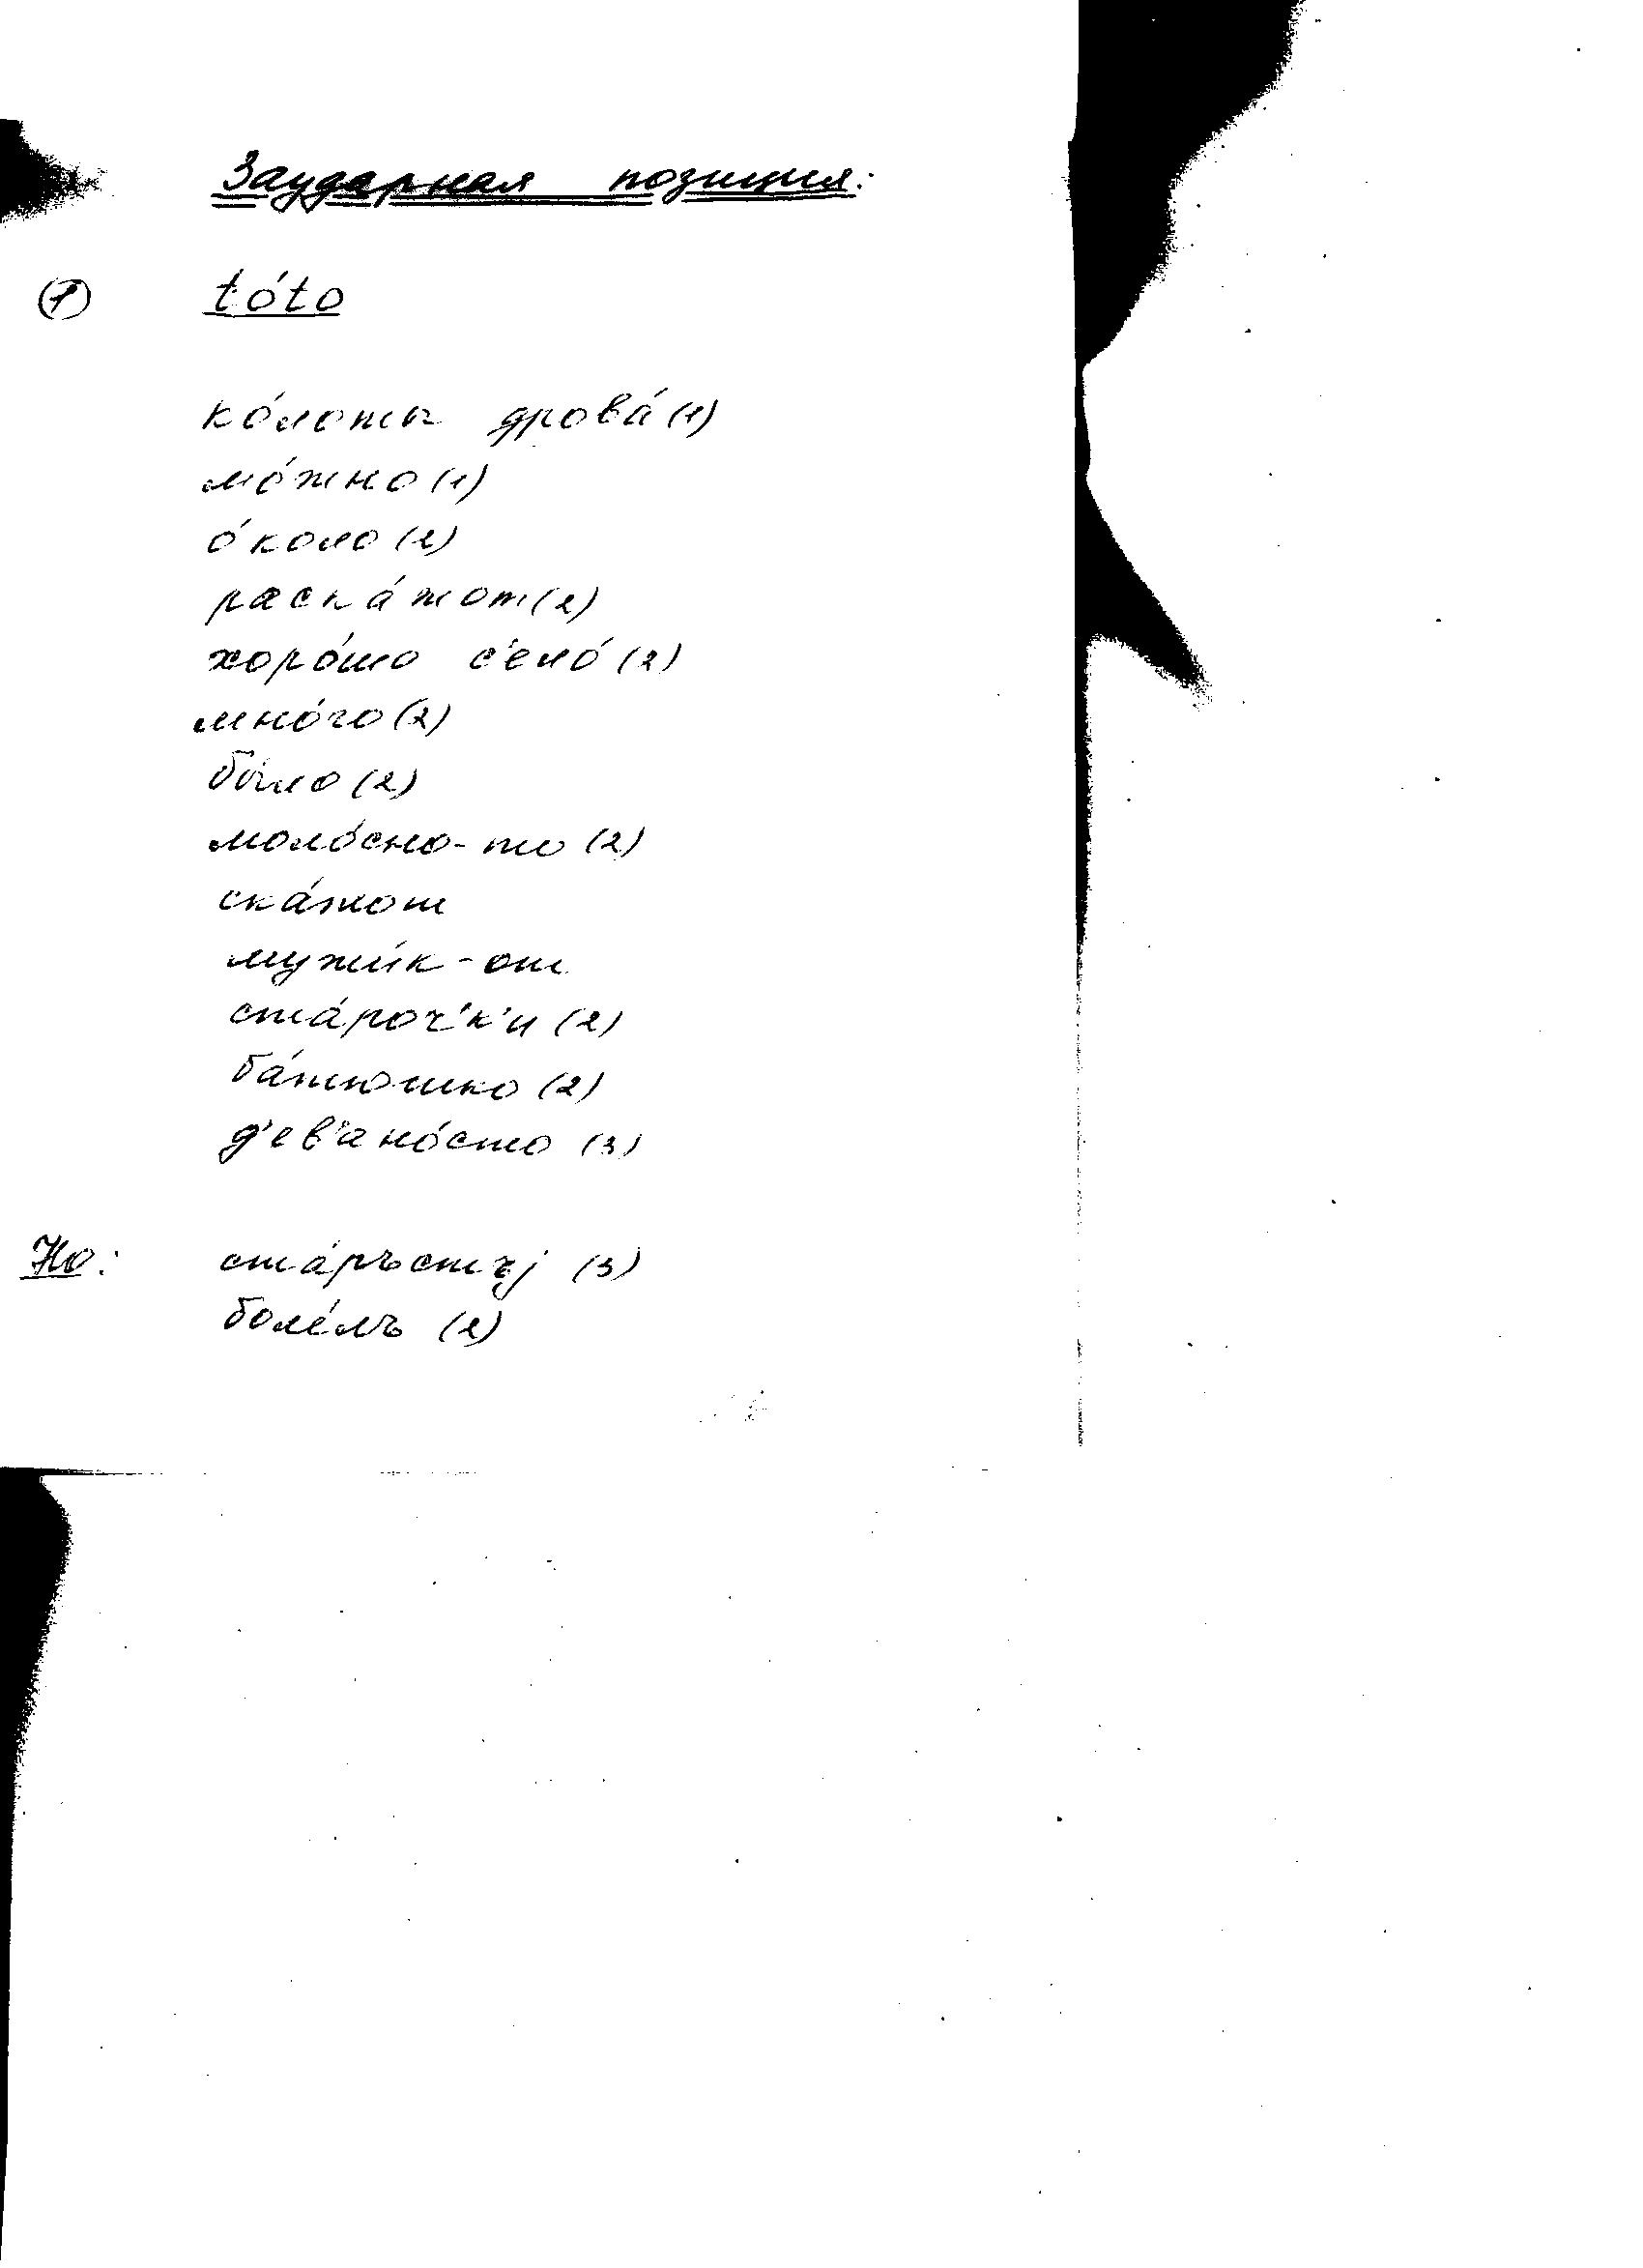 Заударная позиция:
(1) tóto
ко́лоты дрова́ (1)
мо́жно (1)
о́коло (2)
раска́жот (2)
хоро́шо с'ело́ (2)
мно́го (2)
бы́ло (2)
моло́сно-то (2)
ска́жот
мужи́к-от
ста́роч'к'и (2)
ба́тюшко (2)
д'ев'ано́сто (3)
Но: ста́ръстъj (3)
боле́лъ (2)